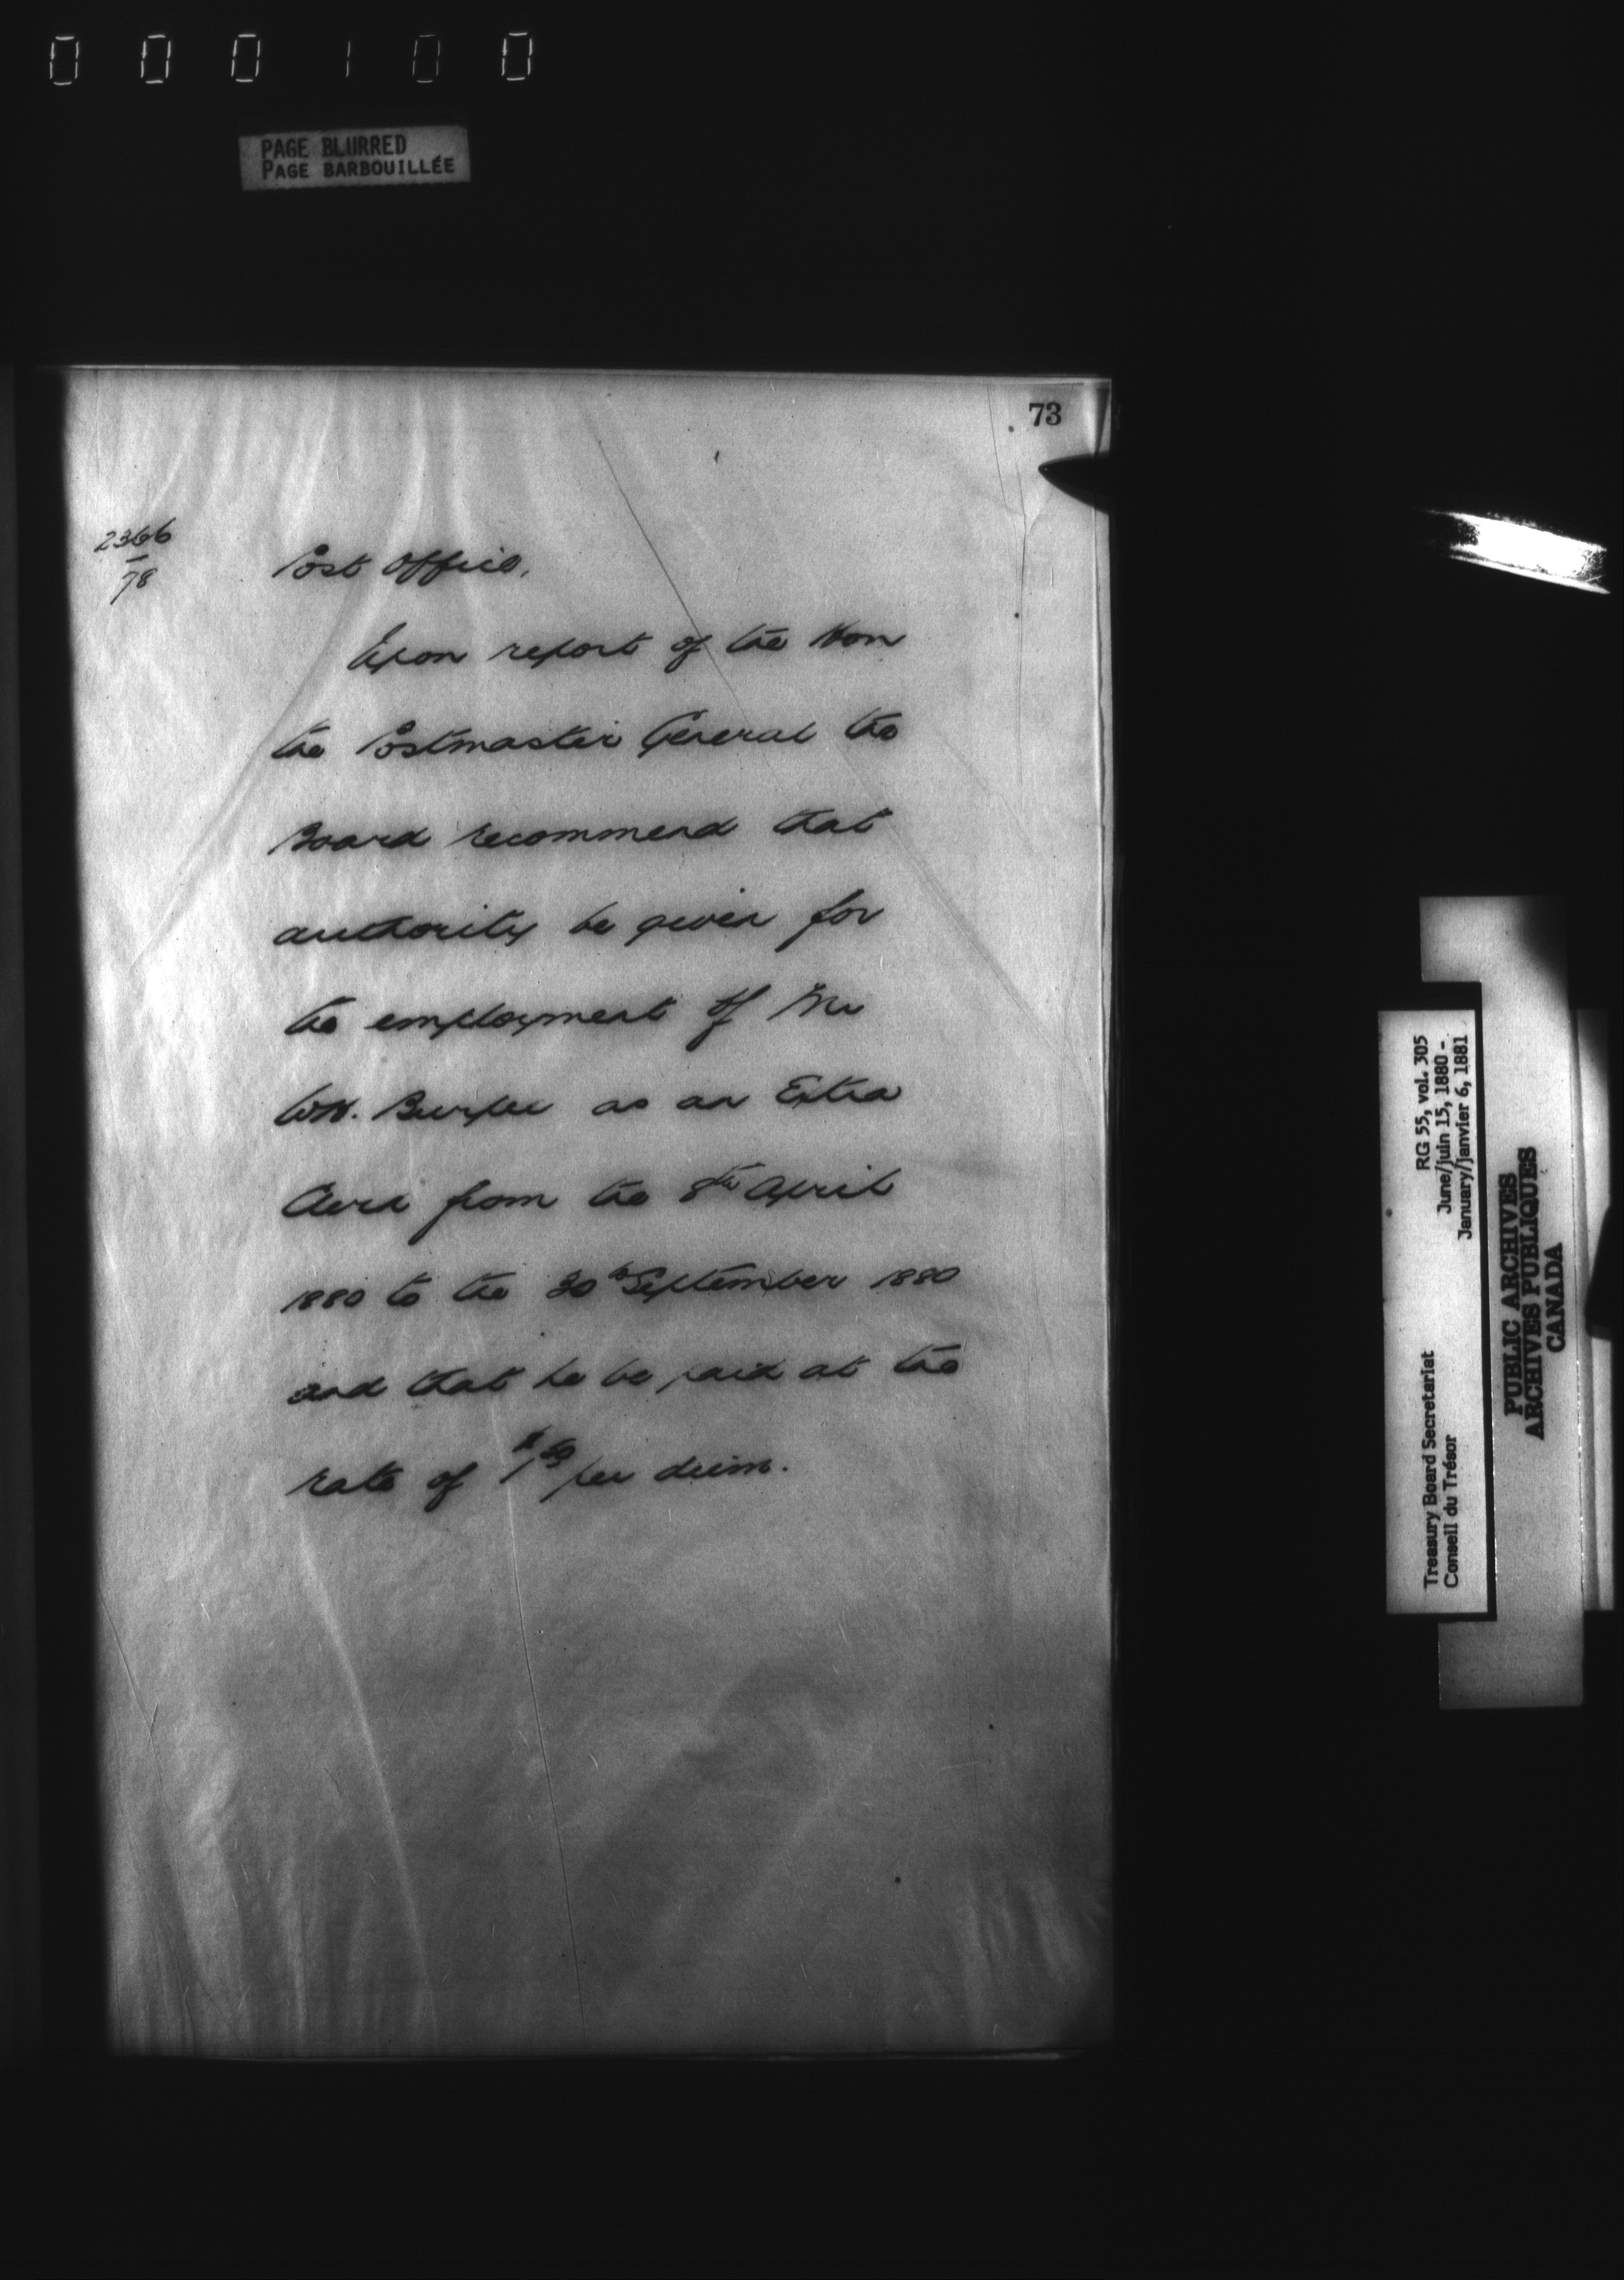 0 0 0 1 0 0
PAGE BLURRED
PAGE BARBOUILLÉE
73
2366
78
Post Office,
Upon report of the Hon
the Postmaster General the
Board recommend that
authority be given for
the employment of Mr
Burpee as an Extra
Clerk from the 8th April
1880 to the 30th September 1880
and that he be paid at the
rate of per diem.
RG 55, vol. 305
June/juin 15, 1880 -
January/janvier 6, 1881
Treasury Board Secretariat
Conseil du Trésor
PUBLIC ARCHIVES
ARCHIVES PUBLIQUES
CANADA